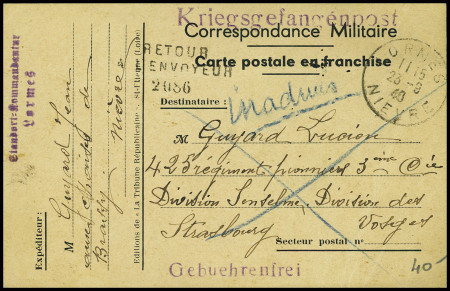 Kriegsgefangenpost
Correspondance Militaire
Carte postale en franchise
RETOUR
ENVOYEUR
2086
Destinataire:
inadmis
LORMES
11 15
28 - 8
40
NIEVRE
M Guyard Lucien
423 régiment pionniers 3ème Cie
Division Senselme, Division des
Vosges
Strasbourg
Secteur postal n°
Gebuehrenfrei
40-
Standort-Kommandantur
Lormes
Expéditeur:
M Guyard Jean
de
Brassy Nièvre
Editions de « La Tribune Républicaine » St-Etienne (Loire)